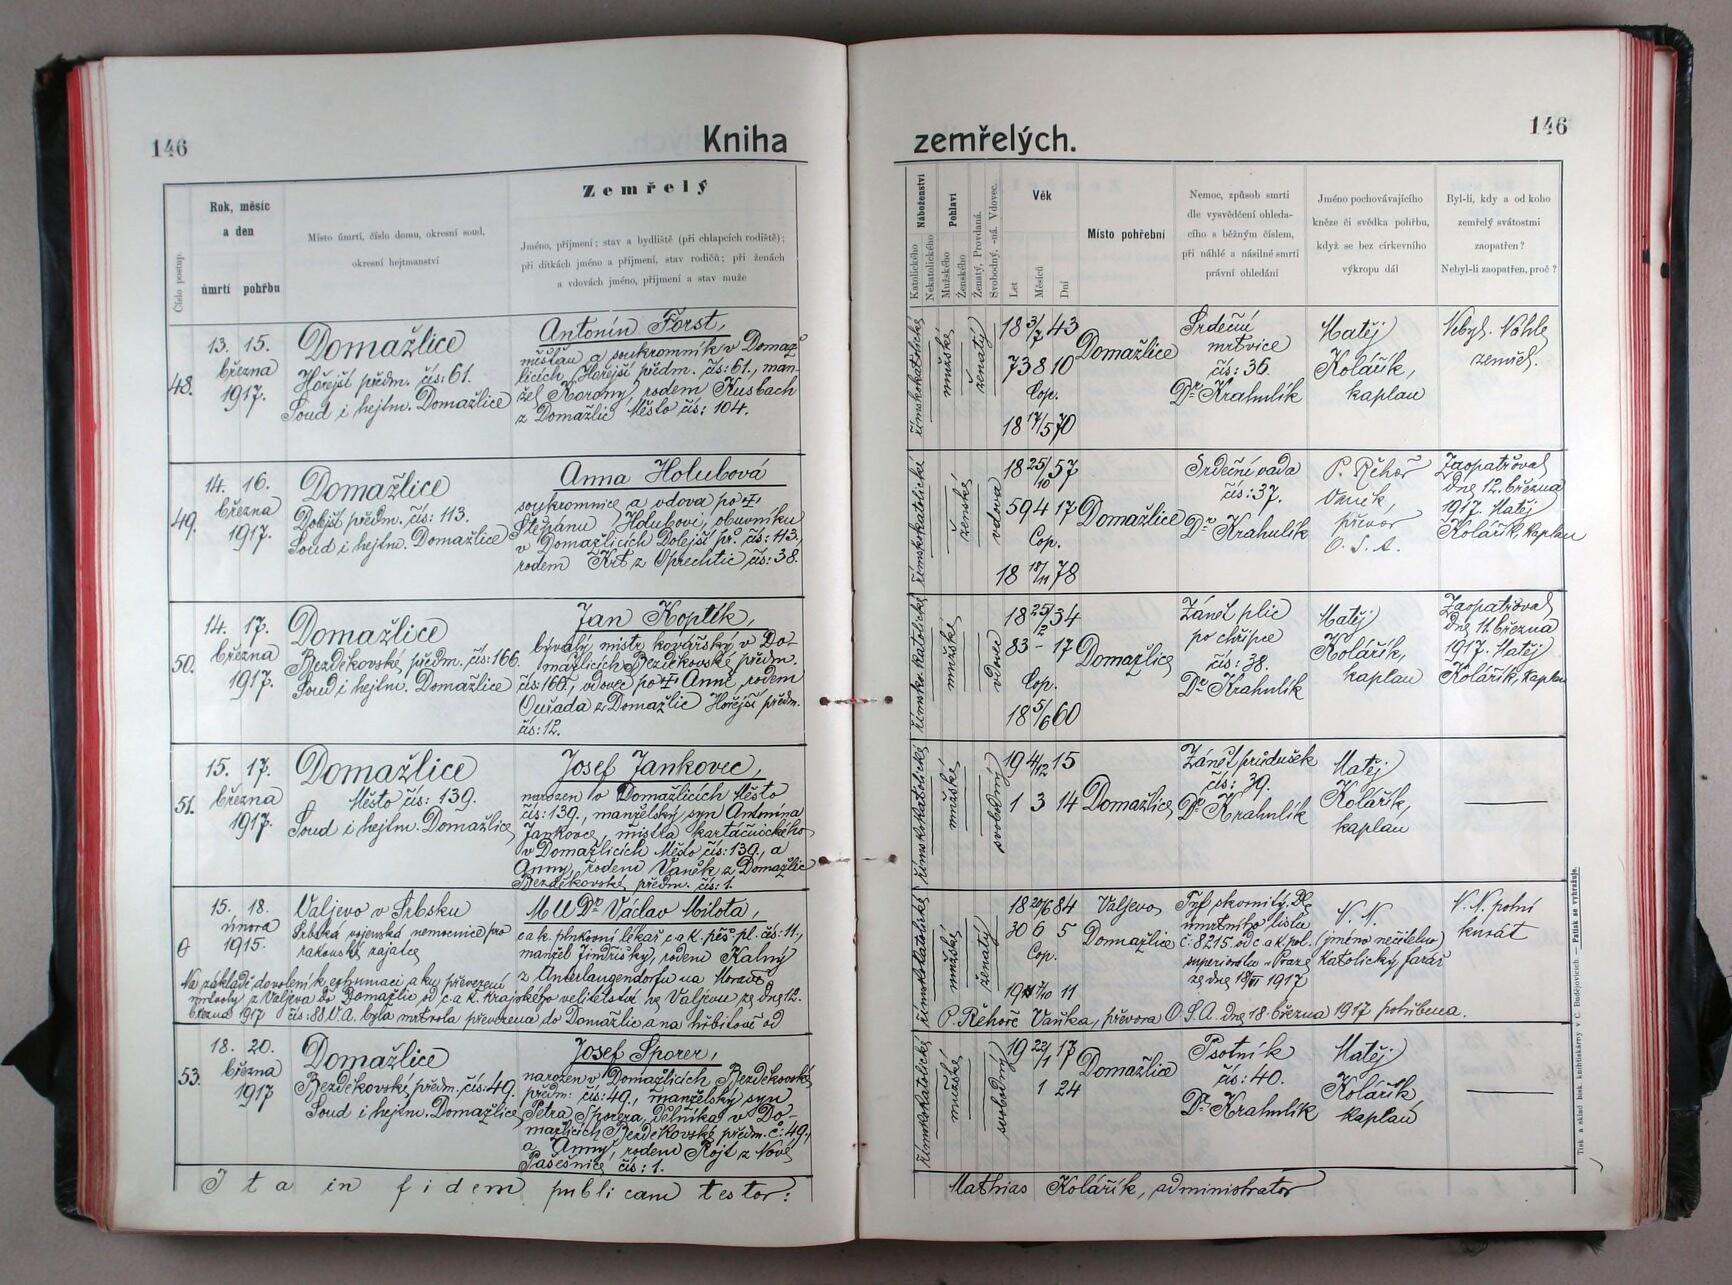 146
Kniha
zemřelých.
146
Číslo postup.
Rok, měsíc
a den
úmrtí pohřbu
Místo úmrtí, číslo domu, okresní soud,
okresní hejtmanství
Zemřelý
Jméno, příjmení; stav a bydliště (při chlapcích rodiště);
při dítkách jméno a příjmení, stav rodičů; při ženách
a vdovách jméno, příjmení a stav muže
Náboženství
Katolického
Nekatolického
Pohlaví
Mužského
Ženského
Ženatý, Provdaná.
Svobodný, -ná. Vdovec.
Věk
Let
Měsíců
Dní
Místo pohřební
Nemoc, způsob smrti
dle vysvědčení ohleda-
cího s běžným číslem,
při náhlé a násilné smrti
právní ohledání
Jméno pochovávajícího
kněze či svědka pohřbu,
když se bez církevního
výkropu dál
Byl-li, kdy a od koho
zemřelý svátostmi
zaopatřen?
Nebyl-li zaopatřen, proč?
48.
13. 15.
března
1917.
Domažlice
Hořejší předm. čís: 61.
Soud i hejtm. Domažlice
Antonín Forst,
měšťan a soukromník v Domaž
licích, Hořejší předm. čís: 61., man-
žel Kordny, rodem Kusbach
z Domažlic Město čís: 104.
římskokatolické
mužské
ženatý
18 3/7 43
73 8 10
Cop.
18 17/5 70
Domažlice
Srdeční
mrtvice
čís: 36.
Dr Krahulík
Matěj
Kolářík,
kaplan
Nebyl. Náhle
zemřel.
49.
14. 16.
března
1917.
Domažlice
Dolejší předm. čís: 113.
Soud i hejtm. Domažlice
Anna Holubová
soukromnice a vdova po †
Štěpánu Holubovi, obuvníku
v Domažlicích Dolejší př. čís: 113.,
rodem Krt z Oprechtic čís: 38.
římskokatolické
ženské
vdova
18 25/10 57
59 4 17
Cop.
18 18/11 78
Domažlice
Srdeční vada
čís: 37.
Dr Krahulík
P. Řehoř
Vaněk,
převor
O. S. A.
Zaopatřoval
dne 12. března
1917. Matěj
Kolářík, kaplan
50.
14. 17.
března
1917.
Domažlice
Bezděkovské předm. čís: 166.
Soud i hejtm. Domažlice
Jan Koptík,
bývalý mistr kovářský v Do-
mažlicích Bezděkovské předm.
čís: 166, vdovec po † Anně, rodem
Ouřada z Domažlic Hořejší předm.
čís: 12.
římsko katolické
mužské
vdovec
18 25/2 34
83 - 17
Cop.
18 5/6 60
Domažlice
Zánět plic
po chřipce
čís: 38.
Dr Krahulík
Matěj
Kolářík,
kaplan
Zaopatřoval
dne 11. března
1917. Matěj
Kolářík, kaplan
51.
15. 17.
března
1917.
Domažlice
Město čís: 139.
Soud i hejtm. Domažlice
Josef Jankovec,
narozen v Domažlicích Město
čís: 139., manželský syn Antonína
Jankovce, mistra kartáčnického
v Domažlicích Město čís: 139., a
Anny, rodem Vaněk z Domažlic
Bezděkovské předm. čís: 1.
římskokatolické
mužské
svobodný
19 4/12 15
1 3 14
Domažlice
Zánět průdušek
čís: 39.
Dr Krahulík
Matěj
Kolářík,
kaplan
0
15. 18.
února
1915.
Valjevo v Srbsku
Srbská vojenská nemocnice pro
rakouské zajatce
MUDr Václav Milota,
c. a k. plukovní lékař c. a k. pěš. pl. čís: 11.,
manžel Jindřišky, rodem Kalný
z Unterlangendorfu na Moravě
římskokatolické
mužské
ženatý
18 20/6 84
30 6 5
Cop.
Valjevo,
Domažlice
Tyf skvrnitý. Dle
úmrtního listu
č: 8215 od c. a k. pol.
superiorátu v Praze
ze dne 18/VI 1917
N. N.
(jméno nečitelno)
katolický farář
N. N. polní
kurát
Na základě dovolení k exhumaci a ku převezení
mrtvoly z Valjeva do Domažlic od c. a k. krajského velitelství ve Valjevu ze dne 12.
března 1917 čís: 88 V. A. byla mrtvola převezena do Domažlic a na hřbitově od
P. Řehoře Vaňka, převora O. S. A. dne 18. března 1917 pohřbena.
53.
18. 20.
března
1917
Domažlice
Bezděkovské předm. čís: 49.
Soud i hejtm. Domažlice
Josef Sporer,
narozen v Domažlicích Bezděkovské
předm: čís: 49., manželský syn
Petra Sporera, dělníka v Do-
mažlicích Bezděkovské předm. č: 49.,
a Anny, rodem Rojt z Nové
Pasečnice čís: 1.
římskokatolické
mužské
svobodný
19 22/1 17
1 24
Domažlice
Psotník
čís: 40.
Dr Krahulík
Matěj
Kolářík
kaplan
Ita in fidem publicam testor:
Mathias Kolářík, administrátor
Tisk a sklad bisk. knihtiskárny v Č. Budějovicích. — Patisk se vyhražuje.